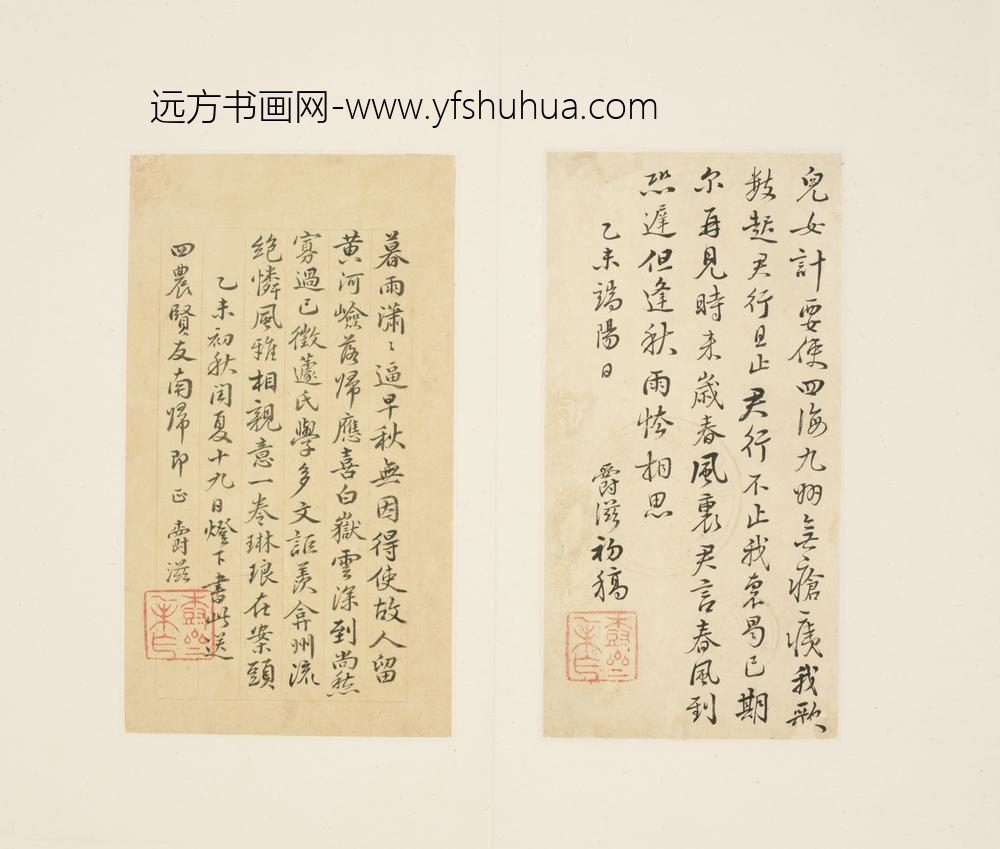 远方书画网-www.yfshuhua.com
兒女計要使四海九州無瘡痍我歌
數起君行且止君行不止我裹曷已期
尔再見時来歲春風裏君言春風到
恐遲但逢秋雨恀相思
乙未端陽日 爵滋初稿
暮雨瀟〻逼早秋無因得使故人留
黄河嶮落帰應喜白嶽雲深到尚愁
寡過已徵蘧氏學多文詎羡弇州流
絶憐風雅相親意一卷琳琅在案頭
乙未初秋閏夏十九日燈下書此送
四農賢友南帰即正 爵滋